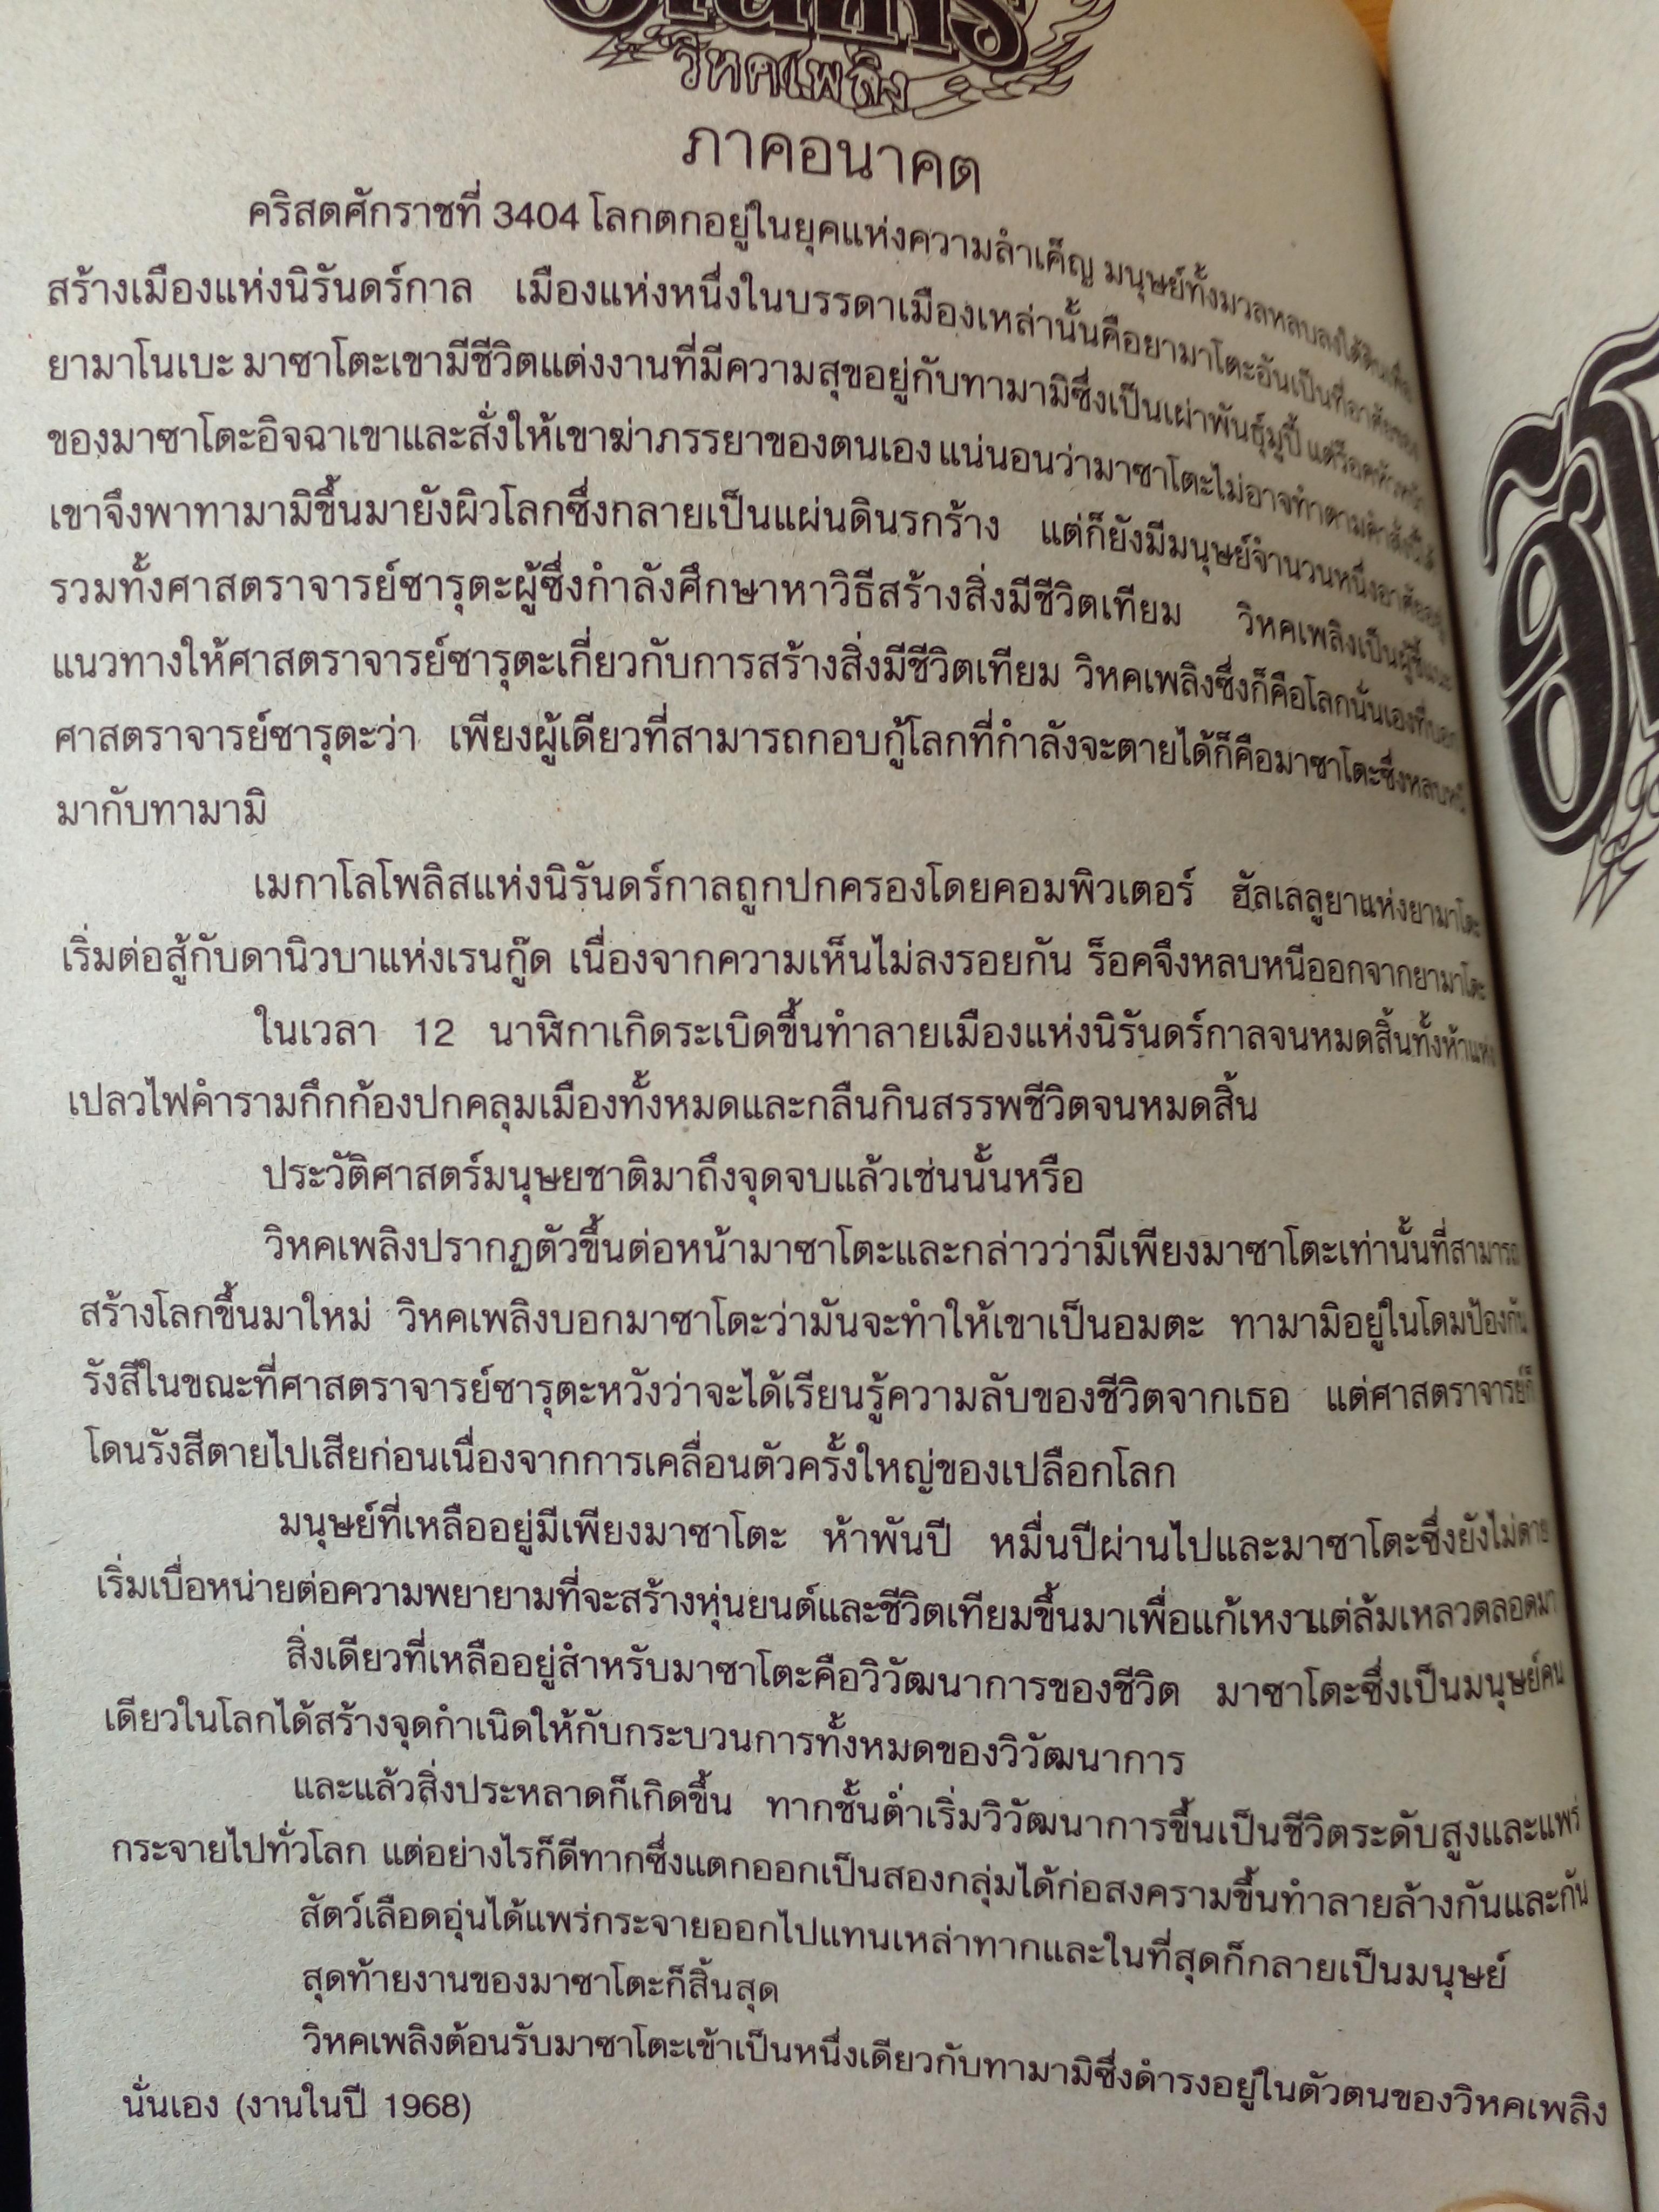 วิหคเพลิง
ภาคอนาคต
คริสตศักราชที่ 3404 โลกตกอยู่ในยุคแห่งความลำเค็ญ มนุษย์ทั้งมวลหลบลงใต้ดินเพื่อ
สร้างเมืองแห่งนิรันดร์กาล เมืองแห่งหนึ่งในบรรดาเมืองเหล่านั้นคือยามาโตะอันเป็นที่อาศัยของ
ยามาโนเบะ มาซาโตะเขามีชีวิตแต่งงานที่มีความสุขอยู่กับทามามิซึ่งเป็นเผ่าพันธุ์มูปี้ แต่ร็อค
ของมาซาโตะอิจฉาเขาและสั่งให้เขาฆ่าภรรยาของตนเอง แน่นอนว่ามาซาโตะไม่อาจทำตามคำสั่งนี้ได้
เขาจึงพาทามามิขึ้นมายังผิวโลกซึ่งกลายเป็นแผ่นดินรกร้าง แต่ก็ยังมีมนุษย์จำนวนหนึ่งอาศัยอยู่
รวมทั้งศาสตราจารย์ซารุตะผู้ซึ่งกำลังศึกษาหาวิธีสร้างสิ่งมีชีวิตเทียม วิหคเพลิงเป็นผู้ชี้แนะ
แนวทางให้ศาสตราจารย์ซารุตะเกี่ยวกับการสร้างสิ่งมีชีวิตเทียม วิหคเพลิงซึ่งก็คือโลกนั่นเองที่บอก
ศาสตราจารย์ซารุตะว่า เพียงผู้เดียวที่สามารถกอบกู้โลกที่กำลังจะตายได้ก็คือมาซาโตะซึ่งหลบหนี
มากับทามามิ
เมกาโลโพลิสแห่งนิรันดร์กาลถูกปกครองโดยคอมพิวเตอร์ ฮัลเลลูยาแห่งยามาโตะ
เริ่มต่อสู้กับดานิวบาแห่งเรนกู๊ด เนื่องจากความเห็นไม่ลงรอยกัน ร็อคจึงหลบหนีออกจากยามาโตะ
ในเวลา 12 นาฬิกาเกิดระเบิดขึ้นทำลายเมืองแห่งนิรันดร์กาลจนหมดสิ้นทั้งห้าแห่ง
เปลวไฟคำรามกึกก้องปกคลุมเมืองทั้งหมดและกลืนกินสรรพชีวิตจนหมดสิ้น
ประวัติศาสตร์มนุษยชาติมาถึงจุดจบแล้วเช่นนั้นหรือ
วิหคเพลิงปรากฏตัวขึ้นต่อหน้ามาซาโตะและกล่าวว่ามีเพียงมาซาโตะเท่านั้นที่สามารถ
สร้างโลกขึ้นมาใหม่ วิหคเพลิงบอกมาซาโตะว่ามันจะทำให้เขาเป็นอมตะ ทามามิอยู่ในโดมป้องกัน
รังสีในขณะที่ศาสตราจารย์ซารุตะหวังว่าจะได้เรียนรู้ความลับของชีวิตจากเธอ แต่ศาสตราจารย์ก็
โดนรังสีตายไปเสียก่อนเนื่องจากการเคลื่อนตัวครั้งใหญ่ของเปลือกโลก
มนุษย์ที่เหลืออยู่มีเพียงมาซาโตะ ห้าพันปี หมื่นปีผ่านไปและมาซาโตะซึ่งยังไม่ตาย
เริ่มเบื่อหน่ายต่อความพยายามที่จะสร้างหุ่นยนต์และชีวิตเทียมขึ้นมาเพื่อแก้เหงาแต่ล้มเหลวตลอดมา
สิ่งเดียวที่เหลืออยู่สำหรับมาซาโตะคือวิวัฒนาการของชีวิต มาซาโตะซึ่งเป็นมนุษย์คน
เดียวในโลกได้สร้างจุดกำเนิดให้กับกระบวนการทั้งหมดของวิวัฒนาการ
และแล้วสิ่งประหลาดก็เกิดขึ้น ทากชั้นต่ำเริ่มวิวัฒนาการขึ้นเป็นชีวิตระดับสูงและแพร่
กระจายไปทั่วโลก แต่อย่างไรก็ดีทากซึ่งแตกออกเป็นสองกลุ่มได้ก่อสงครามขึ้นทำลายล้างกันและกัน
สัตว์เลือดอุ่นได้แพร่กระจายออกไปแทนเหล่าทากและในที่สุดก็กลายเป็นมนุษย์
สุดท้ายงานของมาซาโตะก็สิ้นสุด
วิหคเพลิงต้อนรับมาซาโตะเข้าเป็นหนึ่งเดียวกับทามามิซึ่งดำรงอยู่ในตัวตนของวิหคเพลิง
นั่นเอง (งานในปี 1968)